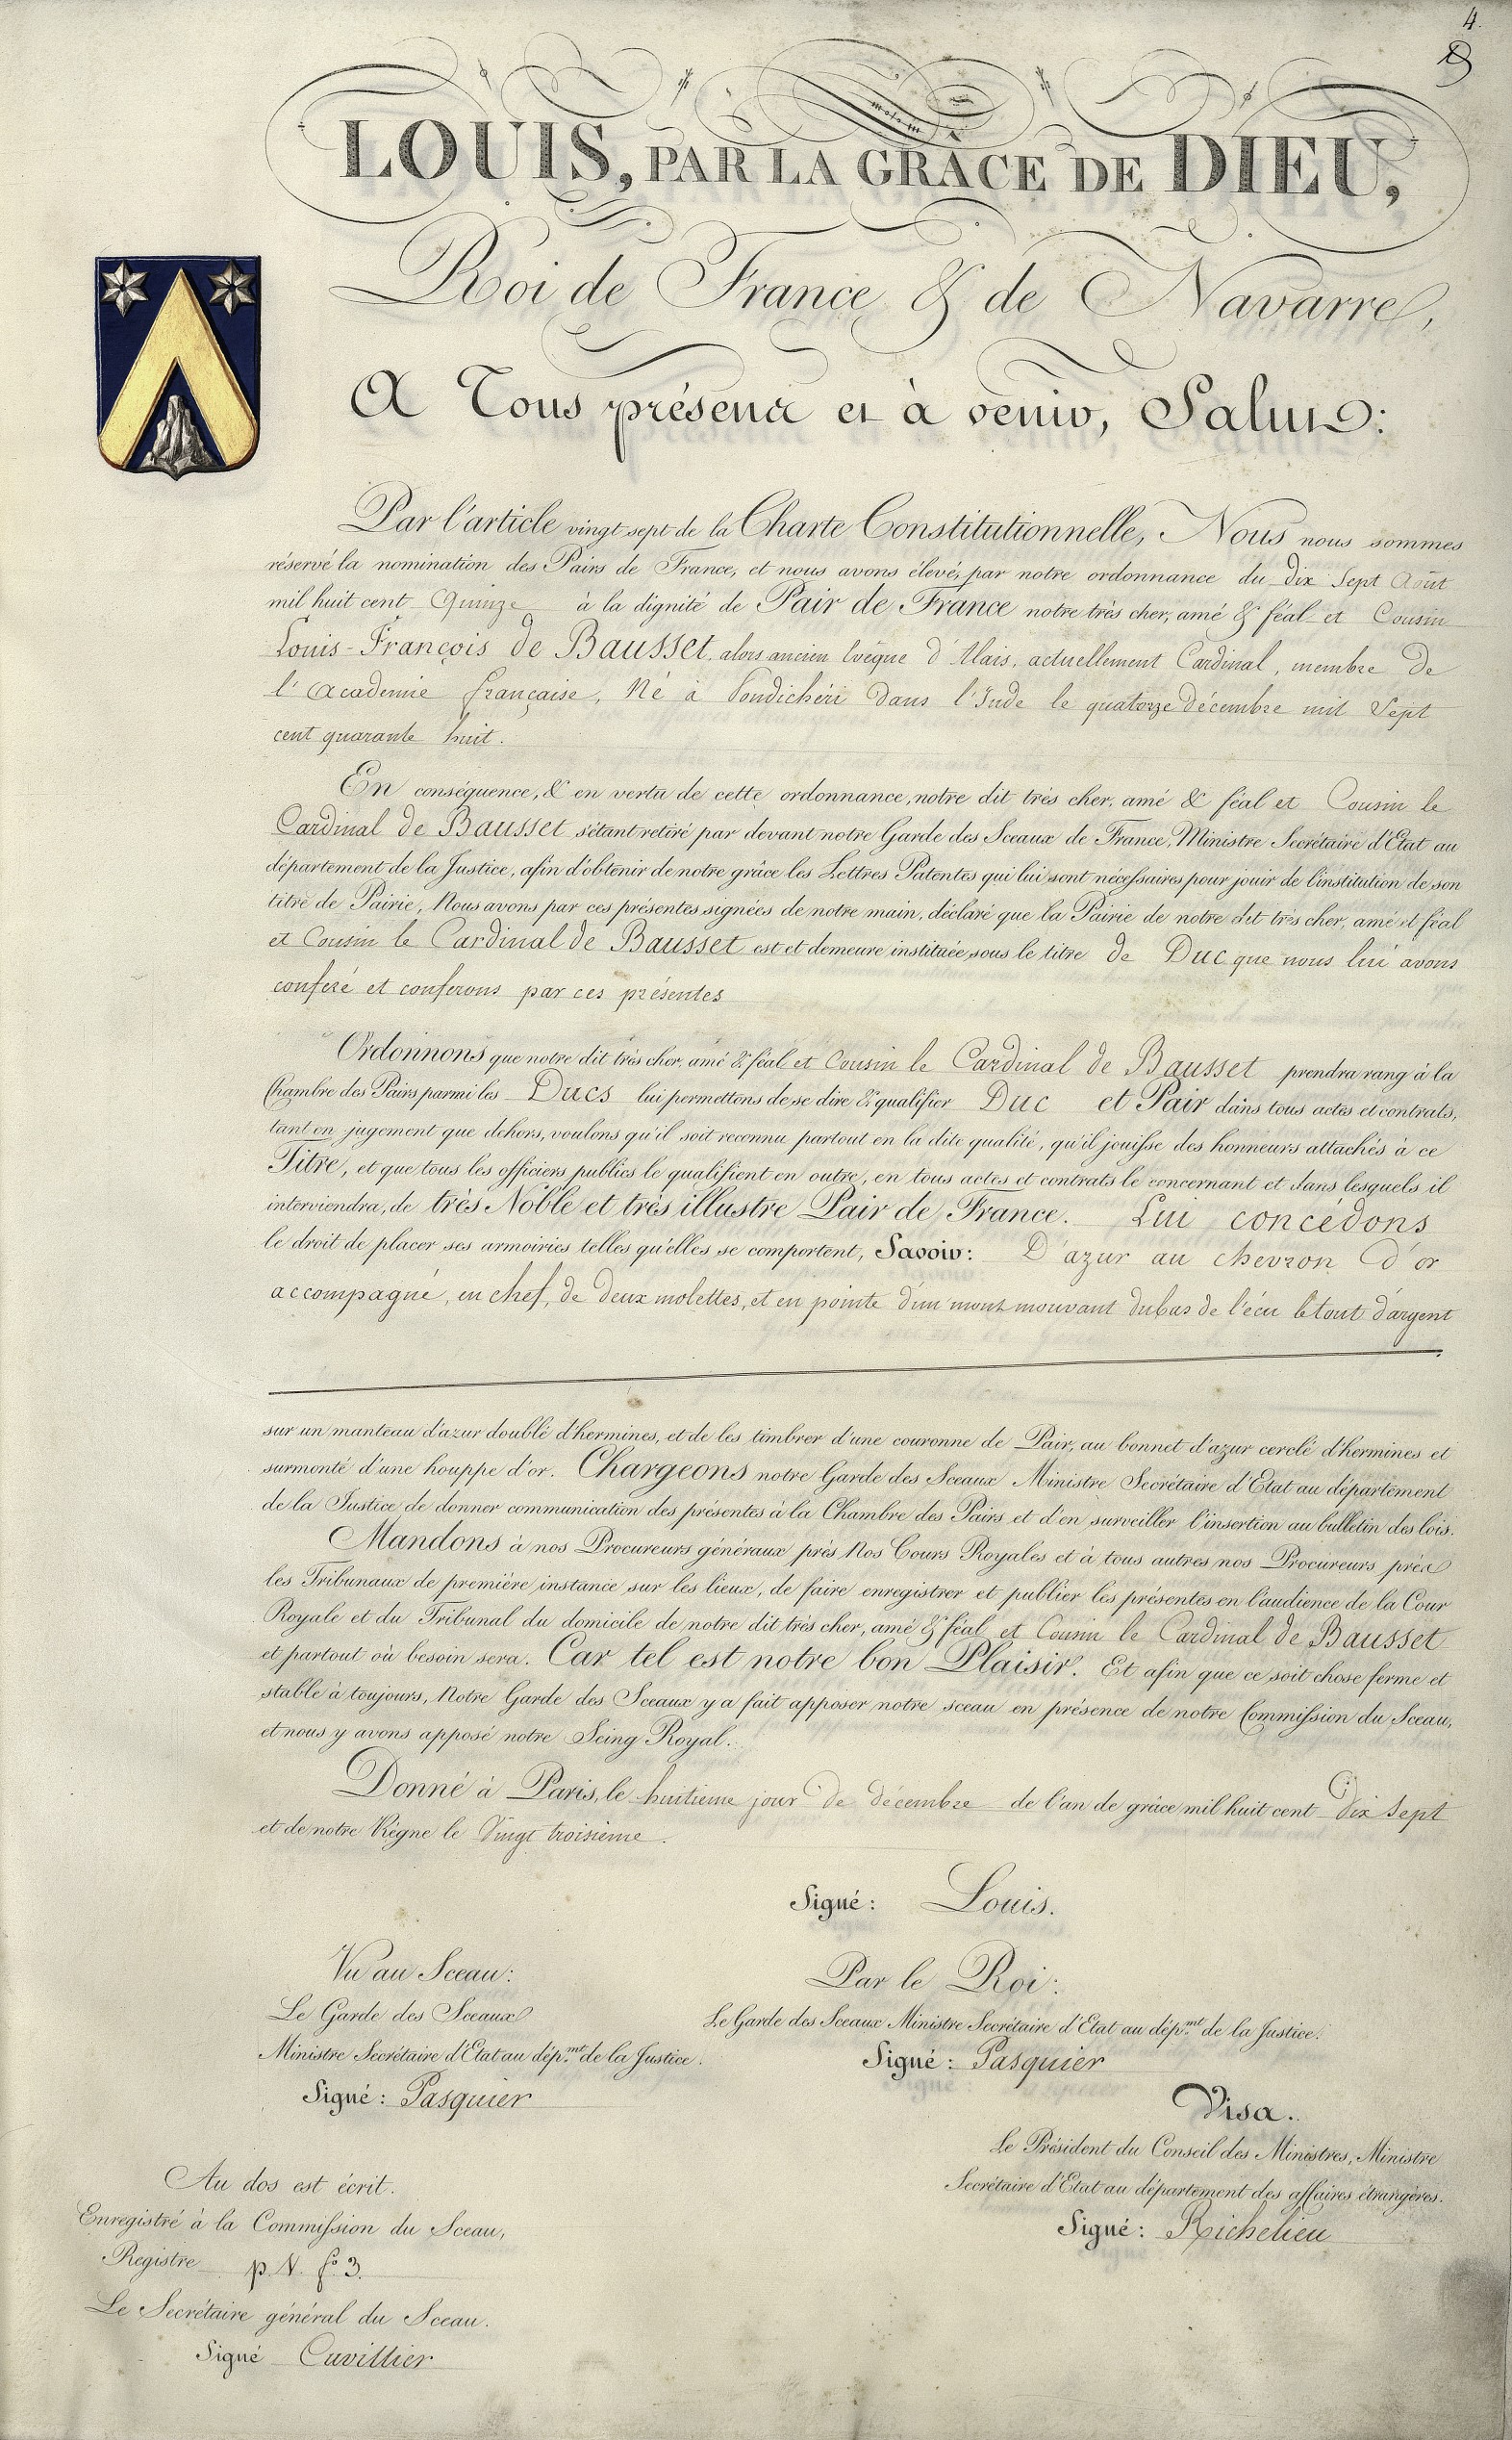 4.
LOUIS, PAR LA GRÂCE DE DIEU,
Roi de France & de Navarre,
A Tous présens et à venir, Salut:
Par l'article vingt sept de la Charte Constitutionnelle, Nous nous sommes
réservé la nomination des Pairs de France, et nous avons élevé, par notre ordonnance du dix Sept Août
mil huit cent Quinze à la dignité de Pair de France notre très cher, amé & féal et Cousin
Louis-François de Bausset, alors ancien évêque d'Alais, actuellement Cardinal, membre de
l'Académie française, Né à Pondichéri dans l'Inde le quatorze décembre mil Sept
cent quarante huit.
En conséquence, & en vertu de cette ordonnance, notre dit très cher, amé & féal et Cousin le
Cardinal de Bausset s'étant retiré par devant notre Garde des Sceaux de France, Ministre Secrétaire d'Etat au
département de la Justice, afin d'obtenir de notre grâce les Lettres Patentes qui lui sont nécessaires pour jouir de l'institution de son
titre de Pairie, Nous avons par ces présentes signées de notre main, déclaré que la Pairie de notre dit très cher, amé et féal
et Cousin le Cardinal de Bausset est et demeure instituée sous le titre de Duc que nous lui avons
conféré et conférons par ces présentes
Ordonnons que notre dit très cher, amé & féal et Cousin le Cardinal de Bausset prendra rang à la
Chambre des Pairs parmi les Ducs lui permettons de se dire & qualifier Duc et Pair dans tous actes et contrats,
tant en jugement que dehors, voulons qu'il soit reconnu partout en la dite qualité, qu'il jouisse des honneurs attachés à ce
Titre, et que tous les officiers publics le qualifient en outre, en tous actes et contrats le concernant et dans lesquels il
interviendra, de très Noble et très illustre Pair de France. Lui concédons
le droit de placer ses armoiries telles qu'elles se comportent, Savoir: D'azur au chevron d'or
accompagné, en chef, de deux molettes, et en pointe d'un mont mouvant du bas de l'écu le tout d'argent
sur un manteau d'azur doublé d'hermines, et de les timbrer d'une couronne de Pair, au bonnet d'azur cerclé d'hermines et
surmonté d'une houppe d'or. Chargeons notre Garde des Sceaux Ministre Secrétaire d'Etat au département
de la Justice de donner communication des présentes à la Chambre des Pairs et d'en surveiller l'insertion au bulletin des lois.
Mandons à nos Procureurs généraux près Nos Cours Royales et à tous autres nos Procureurs près
les Tribunaux de première instance sur les lieux, de faire enregistrer et publier les présentes en l'audience de la Cour
Royale et du Tribunal du domicile de notre dit très cher, amé & féal et Cousin le Cardinal de Bausset
et partout où besoin sera. Car tel est notre bon Plaisir. Et afin que ce soit chose ferme et
stable à toujours, Notre Garde des Sceaux y a fait apposer notre sceau en présence de notre Commission du Sceau,
et nous y avons apposé notre Seing Royal.
Donné à Paris, le huitième jour de décembre de l'an de grâce mil huit cent dix Sept
et de notre Règne le Vingt troisième.
Signé: Louis.
Vu au Sceau:
Le Garde des Sceaux
Ministre Secrétaire d'Etat au dép.mt de la Justice.
Signé: Pasquier
Par le Roi:
Le Garde des Sceaux Ministre Secrétaire d'Etat au dép.mt de la Justice.
Signé: Pasquier
Visa.
Le Président du Conseil des Ministres, Ministre
Secrétaire d'Etat au département des affaires étrangères.
Signé: Richelieu
Au dos est écrit.
Enregistré à la Commission du Sceau,
Registre p.V. f.o 3.
Le Secrétaire général du Sceau.
Signé Cuvillier